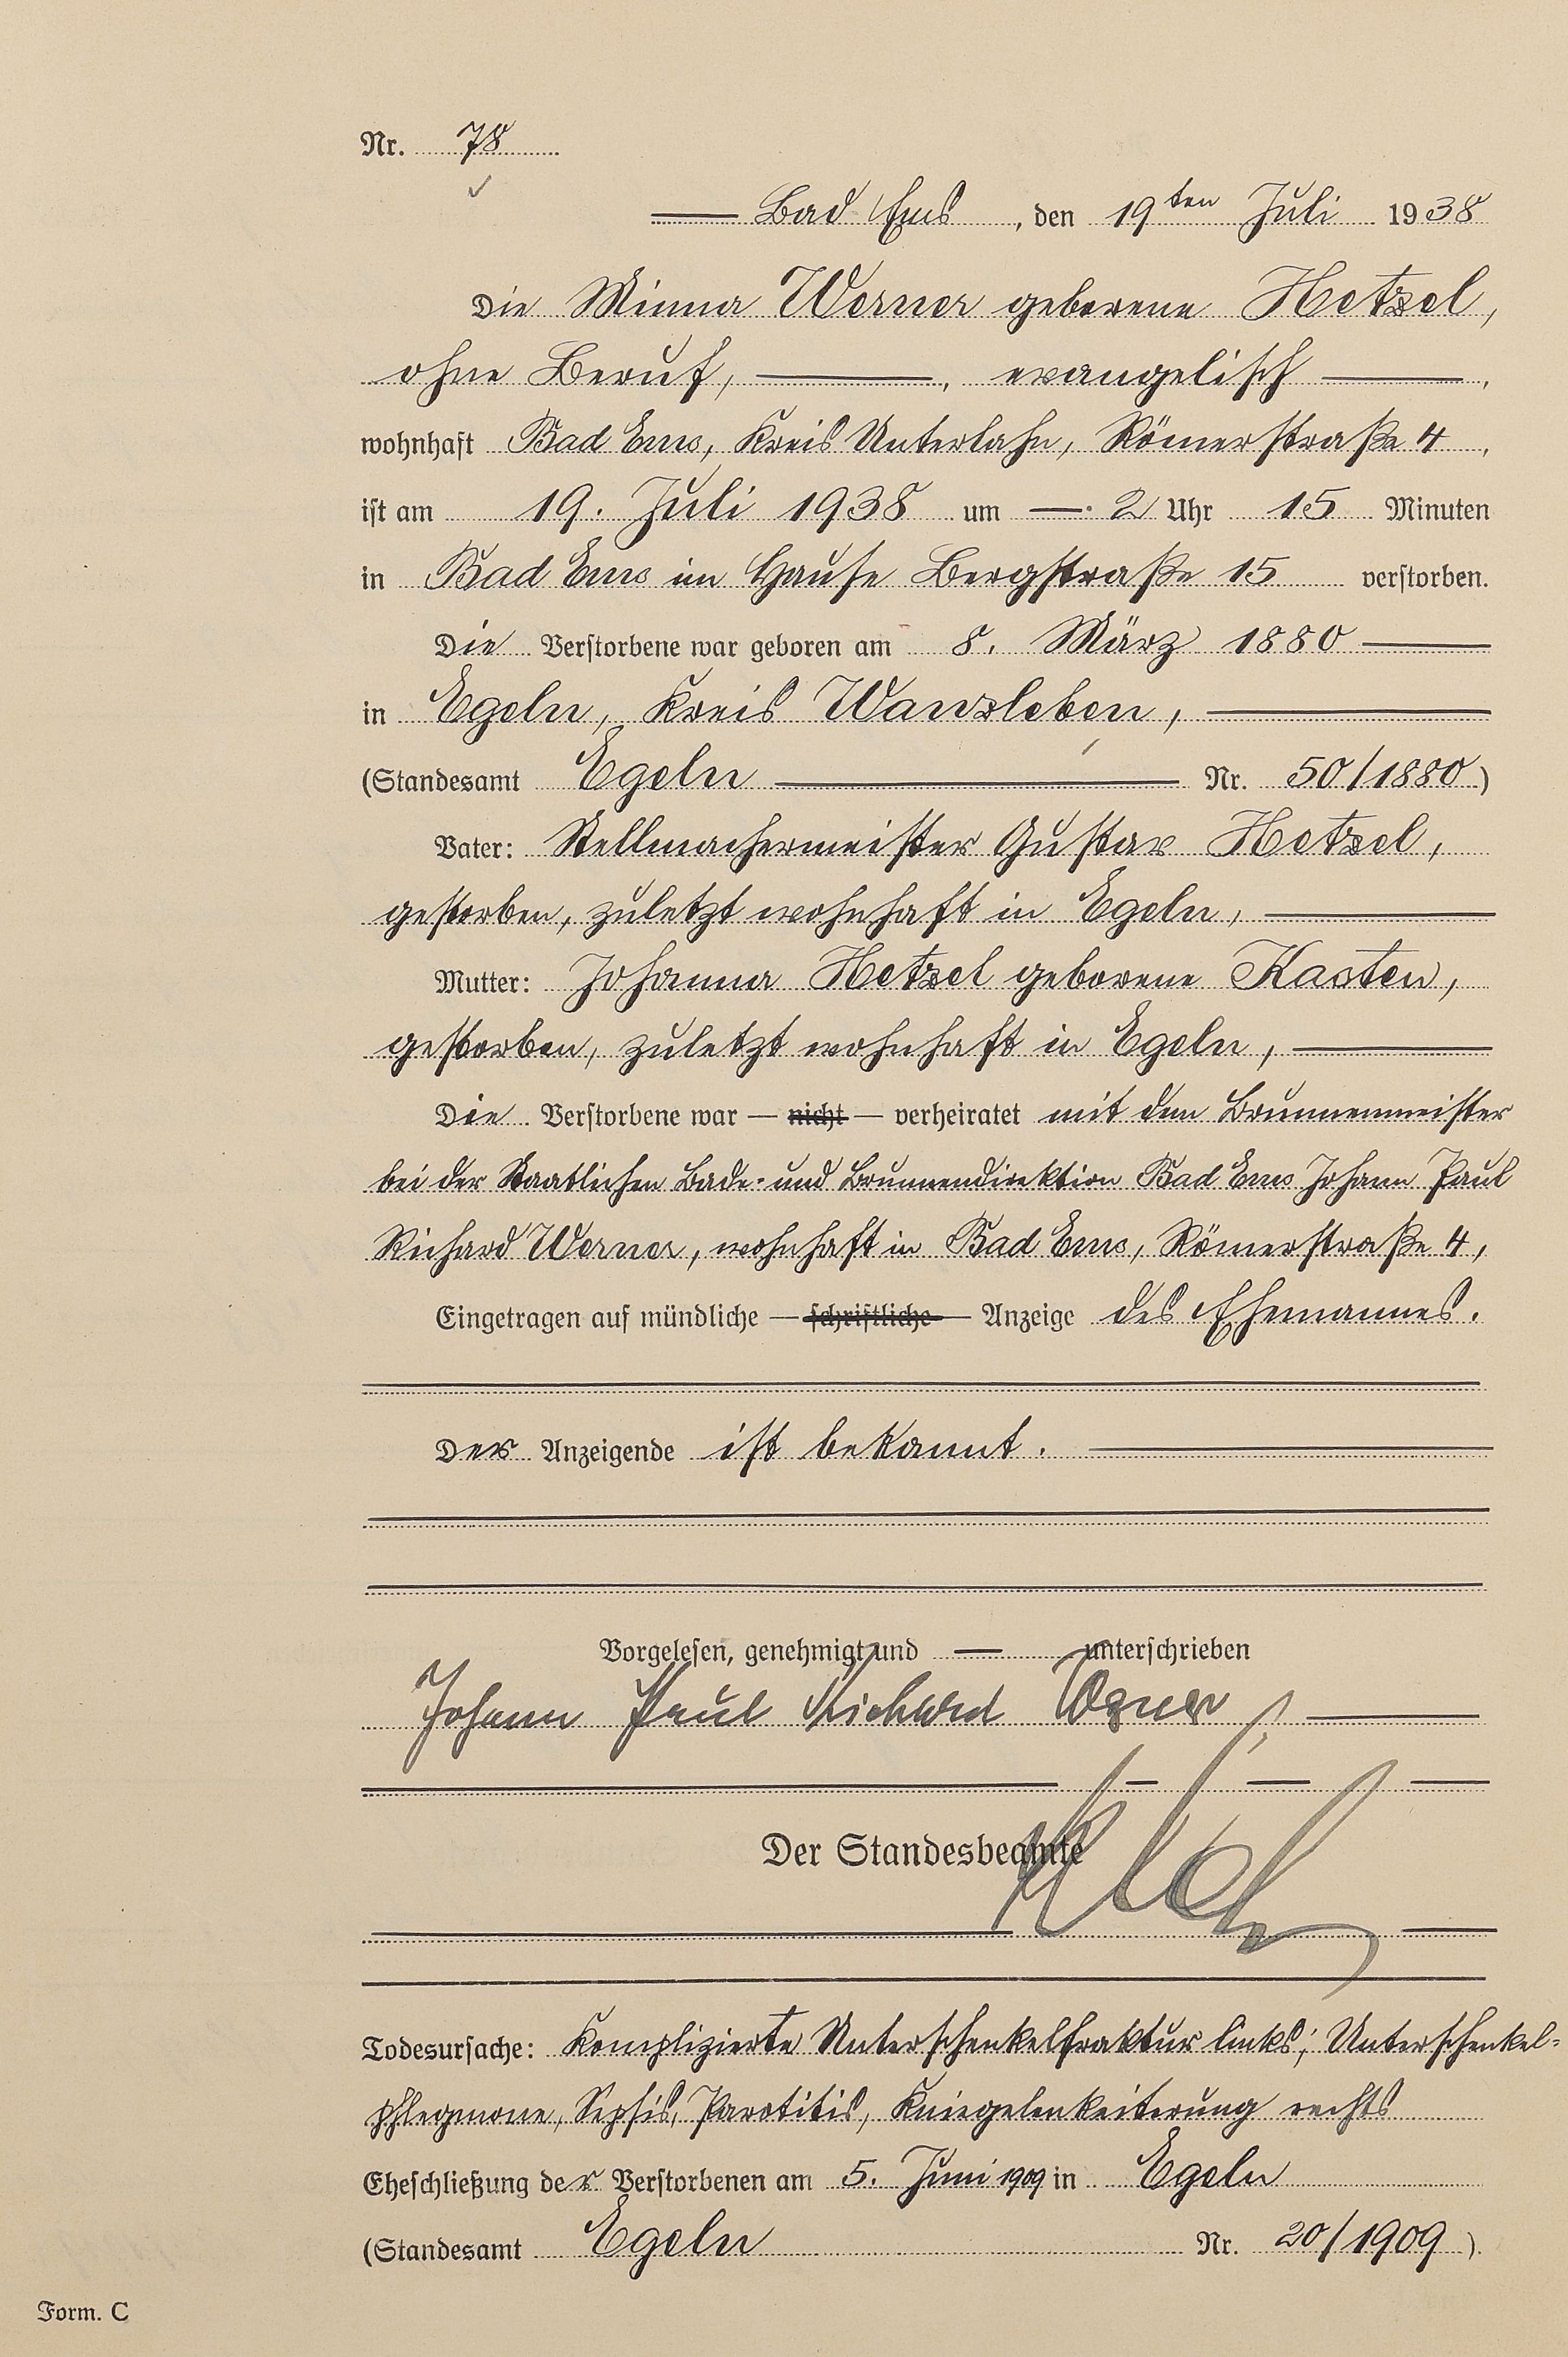 Nr. 78
Bad Ems, den 19ten Juli 1938
Die Minna Werner geborene Hetzel,
ohne Beruf, ———, evangelisch ———,
wohnhaft Bad Ems, Kreis Unterlahn, Römerstraße 4,
ist am 19. Juli 1938 um —. 2 Uhr 15 Minuten
in Bad Ems im Hause Bergstraße 15 verstorben.
Die Verstorbene war geboren am 8. März 1880 ———
in Egeln, Kreis Wanzleben, ———
(Standesamt Egeln ——— Nr. 50/1880)
Vater: Stellmachermeister Gustav Hetzel,
gestorben, zuletzt wohnhaft in Egeln, ———
Mutter: Johanna Hetzel geborene Kasten,
gestorben, zuletzt wohnhaft in Egeln, ———
Die Verstorbene war — nicht — verheiratet mit dem Brunnenmeister
bei der Staatlichen Bade- und Brunnendirektion Bad Ems Johann Paul
Richard Werner, wohnhaft in Bad Ems, Römerstraße 4,
Eingetragen auf mündliche — schriftliche — Anzeige des Ehemannes.
Der Anzeigende ist bekannt. ———
Vorgelesen, genehmigt und — unterschrieben
Johann Paul Richard Werner
Der Standesbeamte
Todesursache: Komplizierte Unterschenkelfraktur links; Unterschenkel-
phlegmone, Sepsis, Parotitis, Kniegelenkeiterung rechts
Eheschließung der Verstorbenen am 5. Juni 1909 in Egeln
(Standesamt Egeln Nr. 20/1909)
Form. C